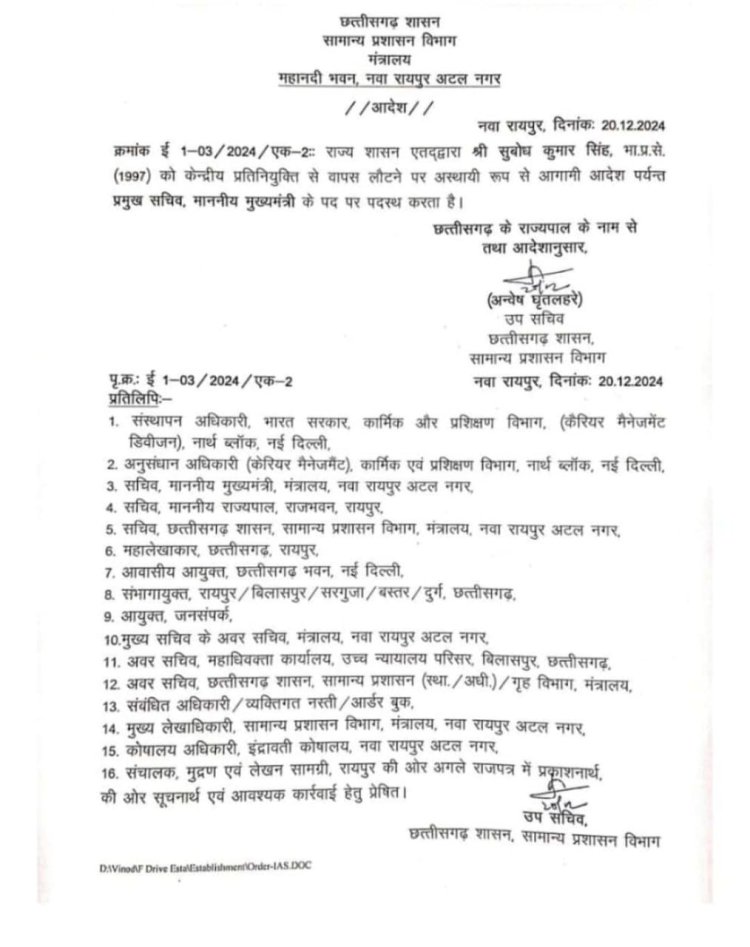 छत्तीसगढ़ शासन
सामान्य प्रशासन विभाग
मंत्रालय
महानदी भवन, नवा रायपुर अटल नगर
//आदेश//
नवा रायपुर, दिनांकः 20.12.2024
क्रमांक ई 1–03/2024/एक–2:: राज्य शासन एतद्द्वारा श्री सुबोध कुमार सिंह, भा.प्र.से.
(1997) को केन्द्रीय प्रतिनियुक्ति से वापस लौटने पर अस्थायी रूप से आगामी आदेश पर्यन्त
प्रमुख सचिव, माननीय मुख्यमंत्री के पद पर पदस्थ करता है।
छत्तीसगढ़ के राज्यपाल के नाम से
तथा आदेशानुसार,
(अन्वेष घृतलहरे)
उप सचिव
छत्तीसगढ़ शासन,
सामान्य प्रशासन विभाग
पृ.क्र.: ई 1–03/2024/एक–2
नवा रायपुर, दिनांकः 20.12.2024
प्रतिलिपिः–
1. संस्थापन अधिकारी, भारत सरकार, कार्मिक और प्रशिक्षण विभाग, (कैरियर मैनेजमेंट
डिवीजन), नार्थ ब्लॉक, नई दिल्ली,
2. अनुसंधान अधिकारी (केरियर मैनेजमैंट), कार्मिक एवं प्रशिक्षण विभाग, नार्थ ब्लॉक, नई दिल्ली,
3. सचिव, माननीय मुख्यमंत्री, मंत्रालय, नवा रायपुर अटल नगर,
4. सचिव, माननीय राज्यपाल, राजभवन, रायपुर,
5. सचिव, छत्तीसगढ़ शासन, सामान्य प्रशासन विभाग, मंत्रालय, नवा रायपुर अटल नगर,
6. महालेखाकार, छत्तीसगढ़, रायपुर,
7. आवासीय आयुक्त, छत्तीसगढ़ भवन, नई दिल्ली,
8. संभागायुक्त, रायपुर/बिलासपुर/सरगुजा/बस्तर/दुर्ग, छत्तीसगढ़,
9. आयुक्त, जनसंपर्क,
10.मुख्य सचिव के अवर सचिव, मंत्रालय, नवा रायपुर अटल नगर,
11. अवर सचिव, महाधिवक्ता कार्यालय, उच्च न्यायालय परिसर, बिलासपुर, छत्तीसगढ़,
12. अवर सचिव, छत्तीसगढ़ शासन, सामान्य प्रशासन (स्था./अधी.)/गृह विभाग, मंत्रालय,
13. संबंधित अधिकारी/व्यक्तिगत नस्ती/आर्डर बुक,
14. मुख्य लेखाधिकारी, सामान्य प्रशासन विभाग, मंत्रालय, नवा रायपुर अटल नगर,
15. कोषालय अधिकारी, इंद्रावती कोषालय, नवा रायपुर अटल नगर,
16. संचालक, मुद्रण एवं लेखन सामग्री, रायपुर की ओर अगले राजपत्र में प्रकाशनार्थ,
की ओर सूचनार्थ एवं आवश्यक कार्रवाई हेतु प्रेषित।
उप सचिव,
छत्तीसगढ़ शासन, सामान्य प्रशासन विभाग
D:\Vinod\F Drive Esta\Establishment\Order-IAS.DOC